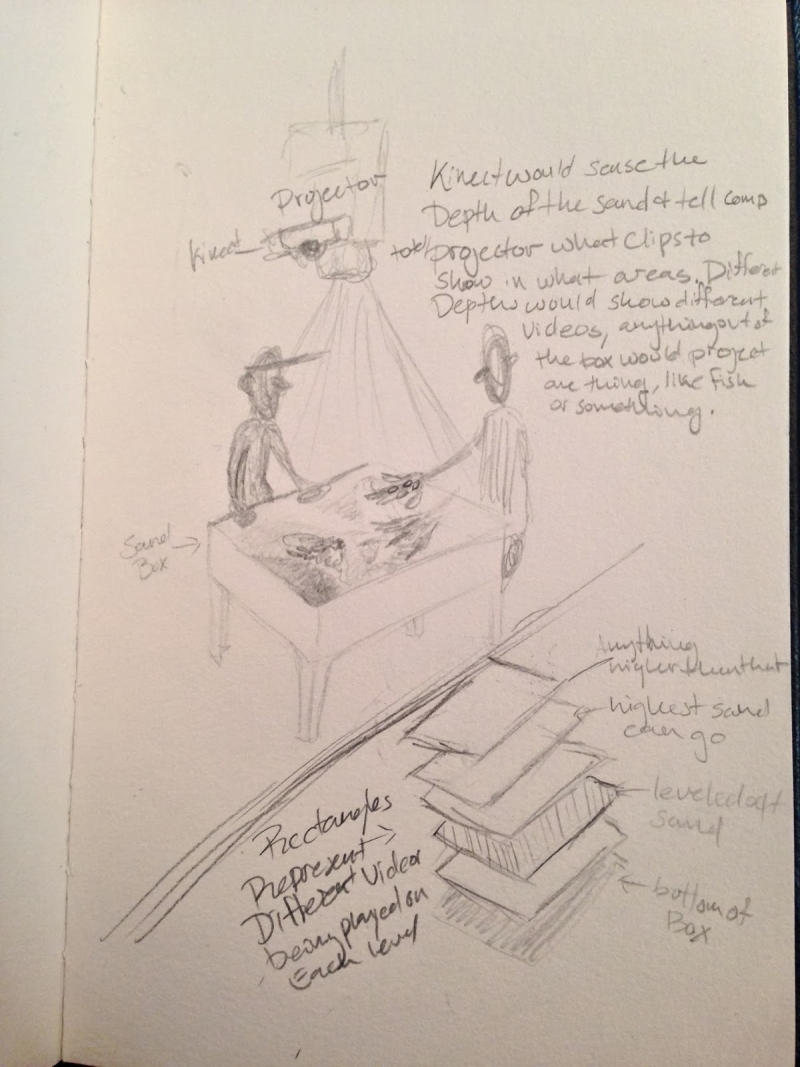 Projector
Kinect
Kinect would sense the
Depth of the sand & tell comp
to tell projector what clips to
show in what areas. Different
Depths would show different
videos, anything out of
the box would project
one thing, like fish
or something.
Sand
Box
Anything
higher then that
highest sand
can go
leveled off
sand
bottom of
Box
Rectangles
Represent
Different Videos
being played on
Each level